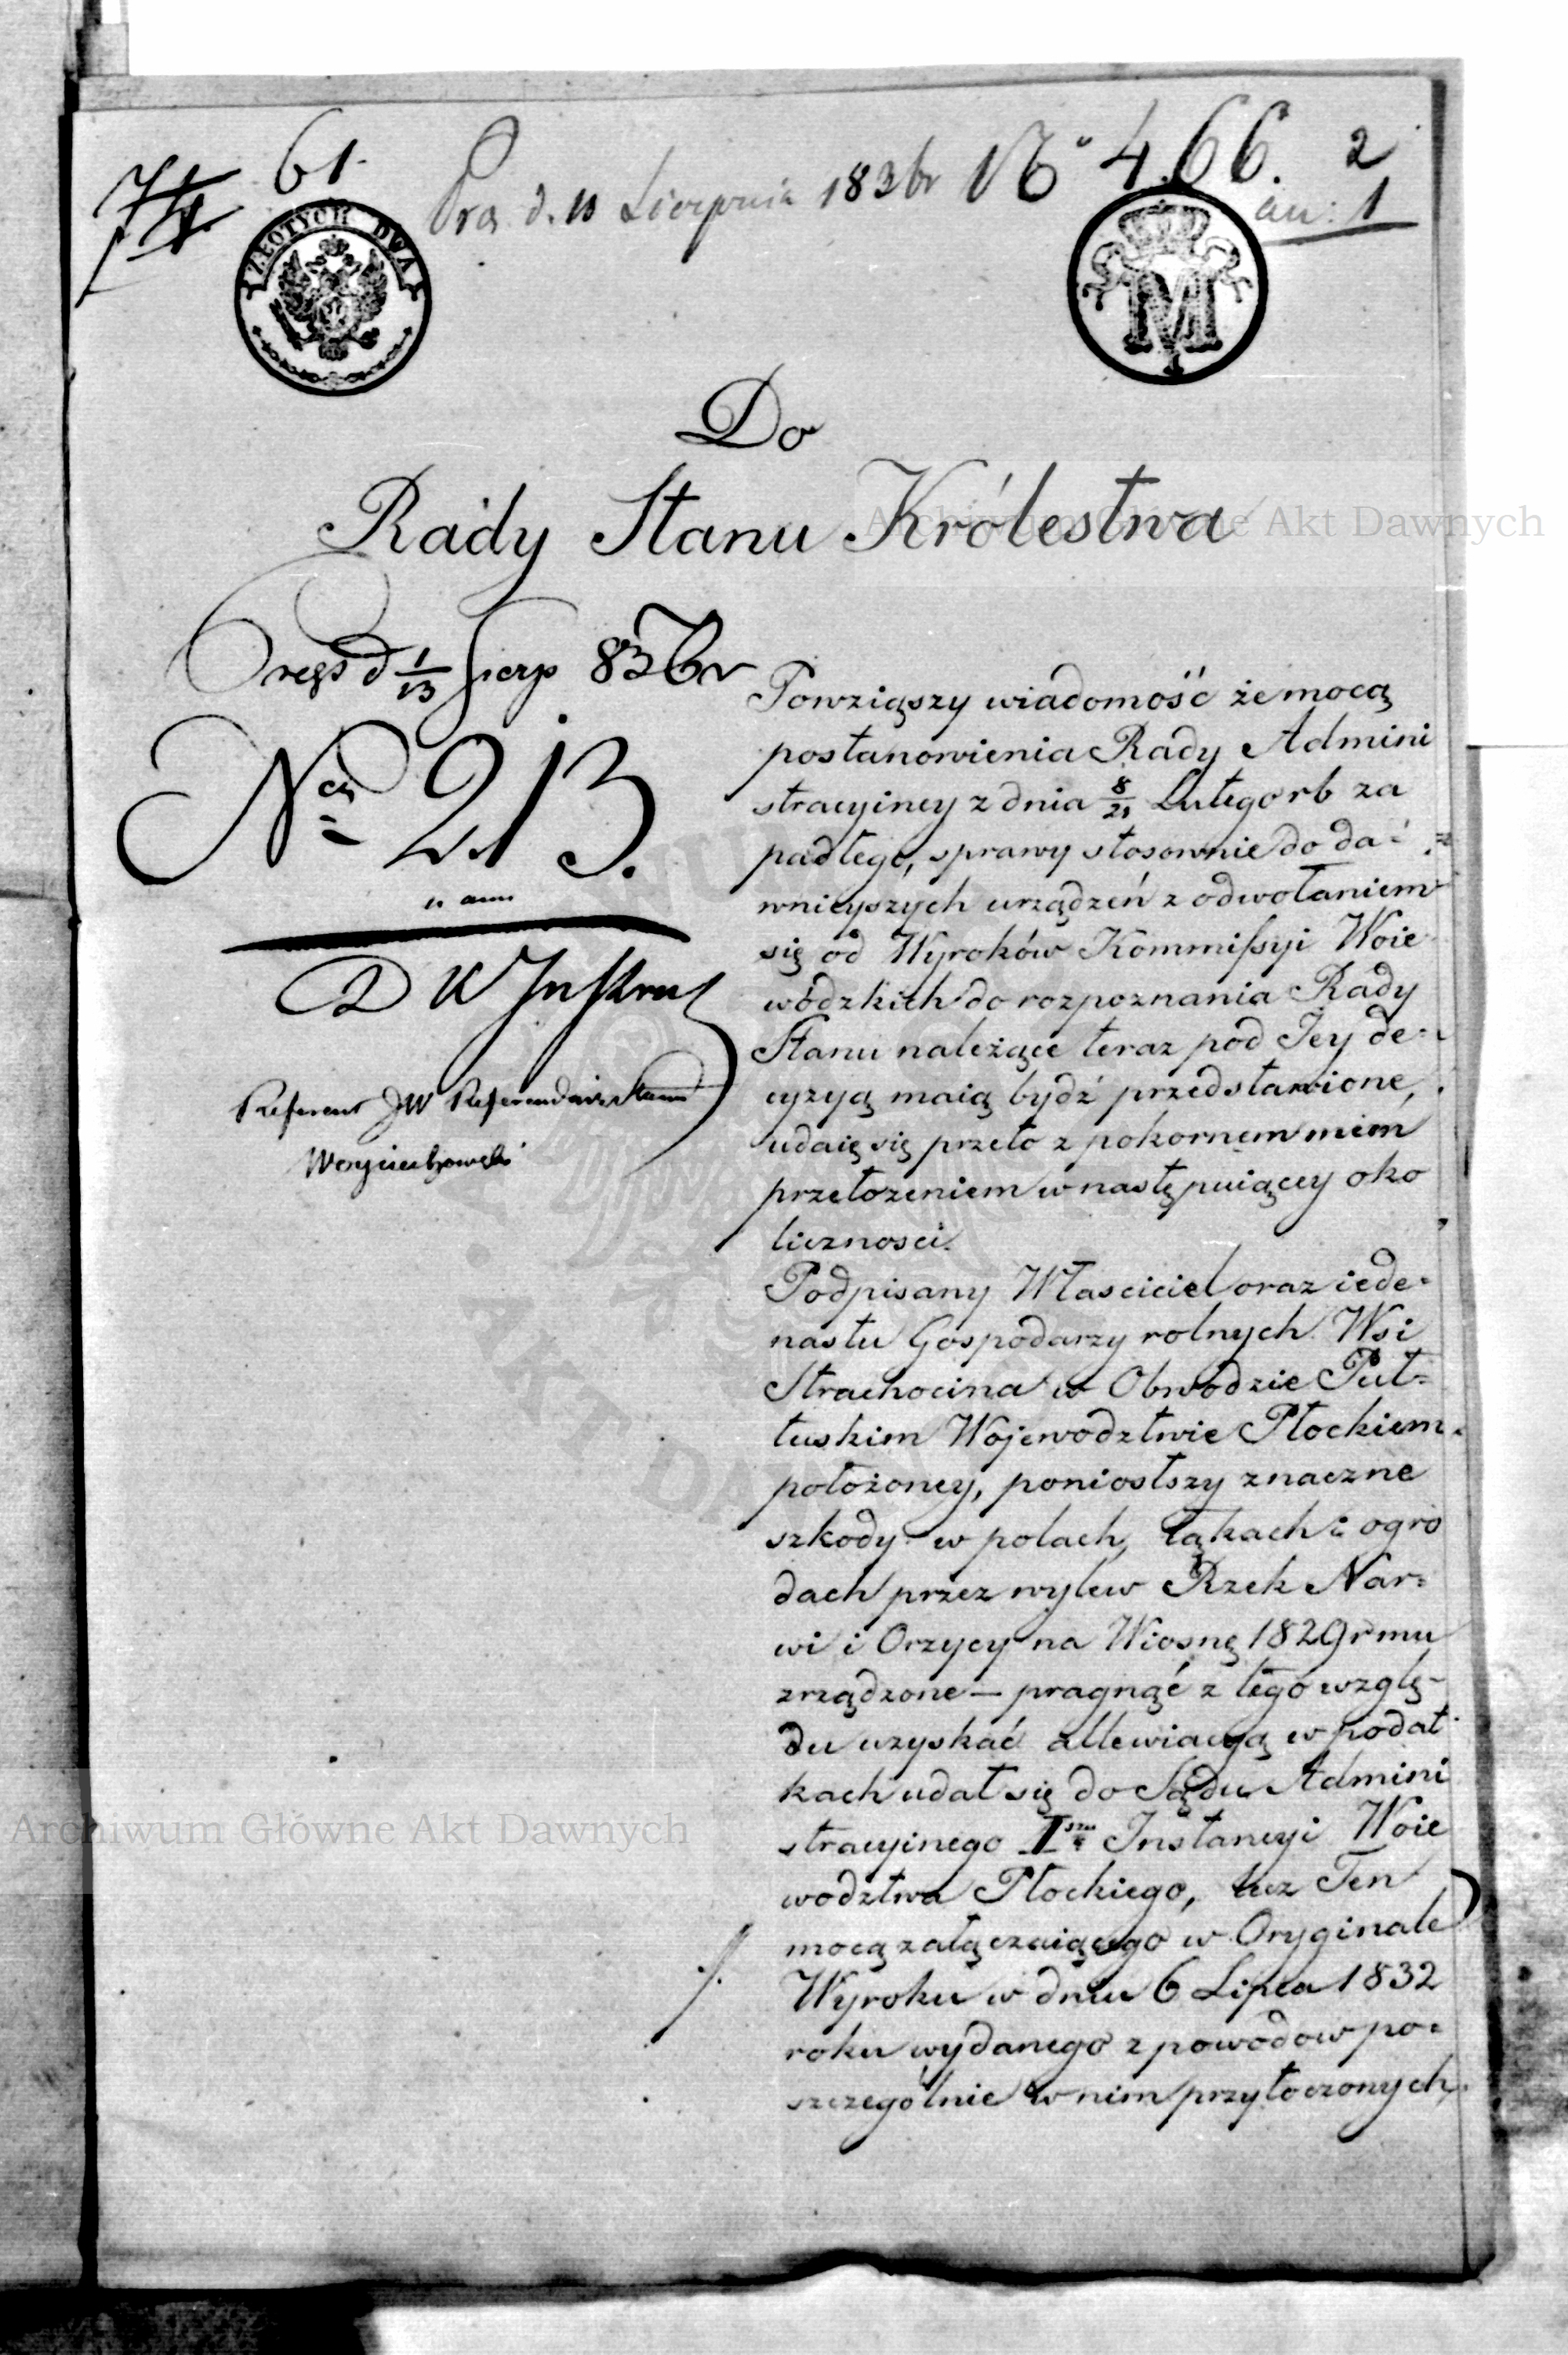 61.
Pra. d. 10 Sierpnia 1836r No 466. 2
an: 1
ZŁOTYCH DWA
M
Do
Rady Stanu Królestwa
d 1/13 Sierp 836r
Nr 213.
D W Instruk
Referent JW Referendarz Stanu
Woyciechowski
Powziąszy wiadomość że mocą
postanowienia Rady Admini
stracyiney z dnia 8/21 Lutego rb za
padłego, sprawy stosownie do da=
wnieyszych urządzeń z odwołaniem
się od Wyroków Kommissyi Woie
wódzkich do rozpoznania Rady
Stanu należące teraz pod Jey de=
cyzyą maią bydź przedstawione,
udaię się przeto z pokornem mém
przełożeniem w następuiącey oko
liczności.
Podpisany Właściciel oraz iede=
nastu Gospodarzy rolnych Wsi
Strachocina w Obwodzie Puł=
tuskim Wojewodztwie Płockiem
położoney, poniosłszy znaczne
szkody w polach, łąkach i ogro
dach przez wylew Rzek Nar=
wi i Orzycy na Wiosnę 1829r mu
zrządzone — pragnąć z tego wzglę=
du uzyskać allewiacyą w podat
kach udał się do Sądu Admini
stracyinego I Instancyi Woie
wodztwa Płockiego, lecz Ten
mocą załączaiącego w Oryginale
./. Wyroku w dniu 6 Lipca 1832
roku wydanego z powodow po=
szczególnie w nim przytoczonych,
Archiwum Główne Akt Dawnych
Archiwum Główne Akt Dawnych